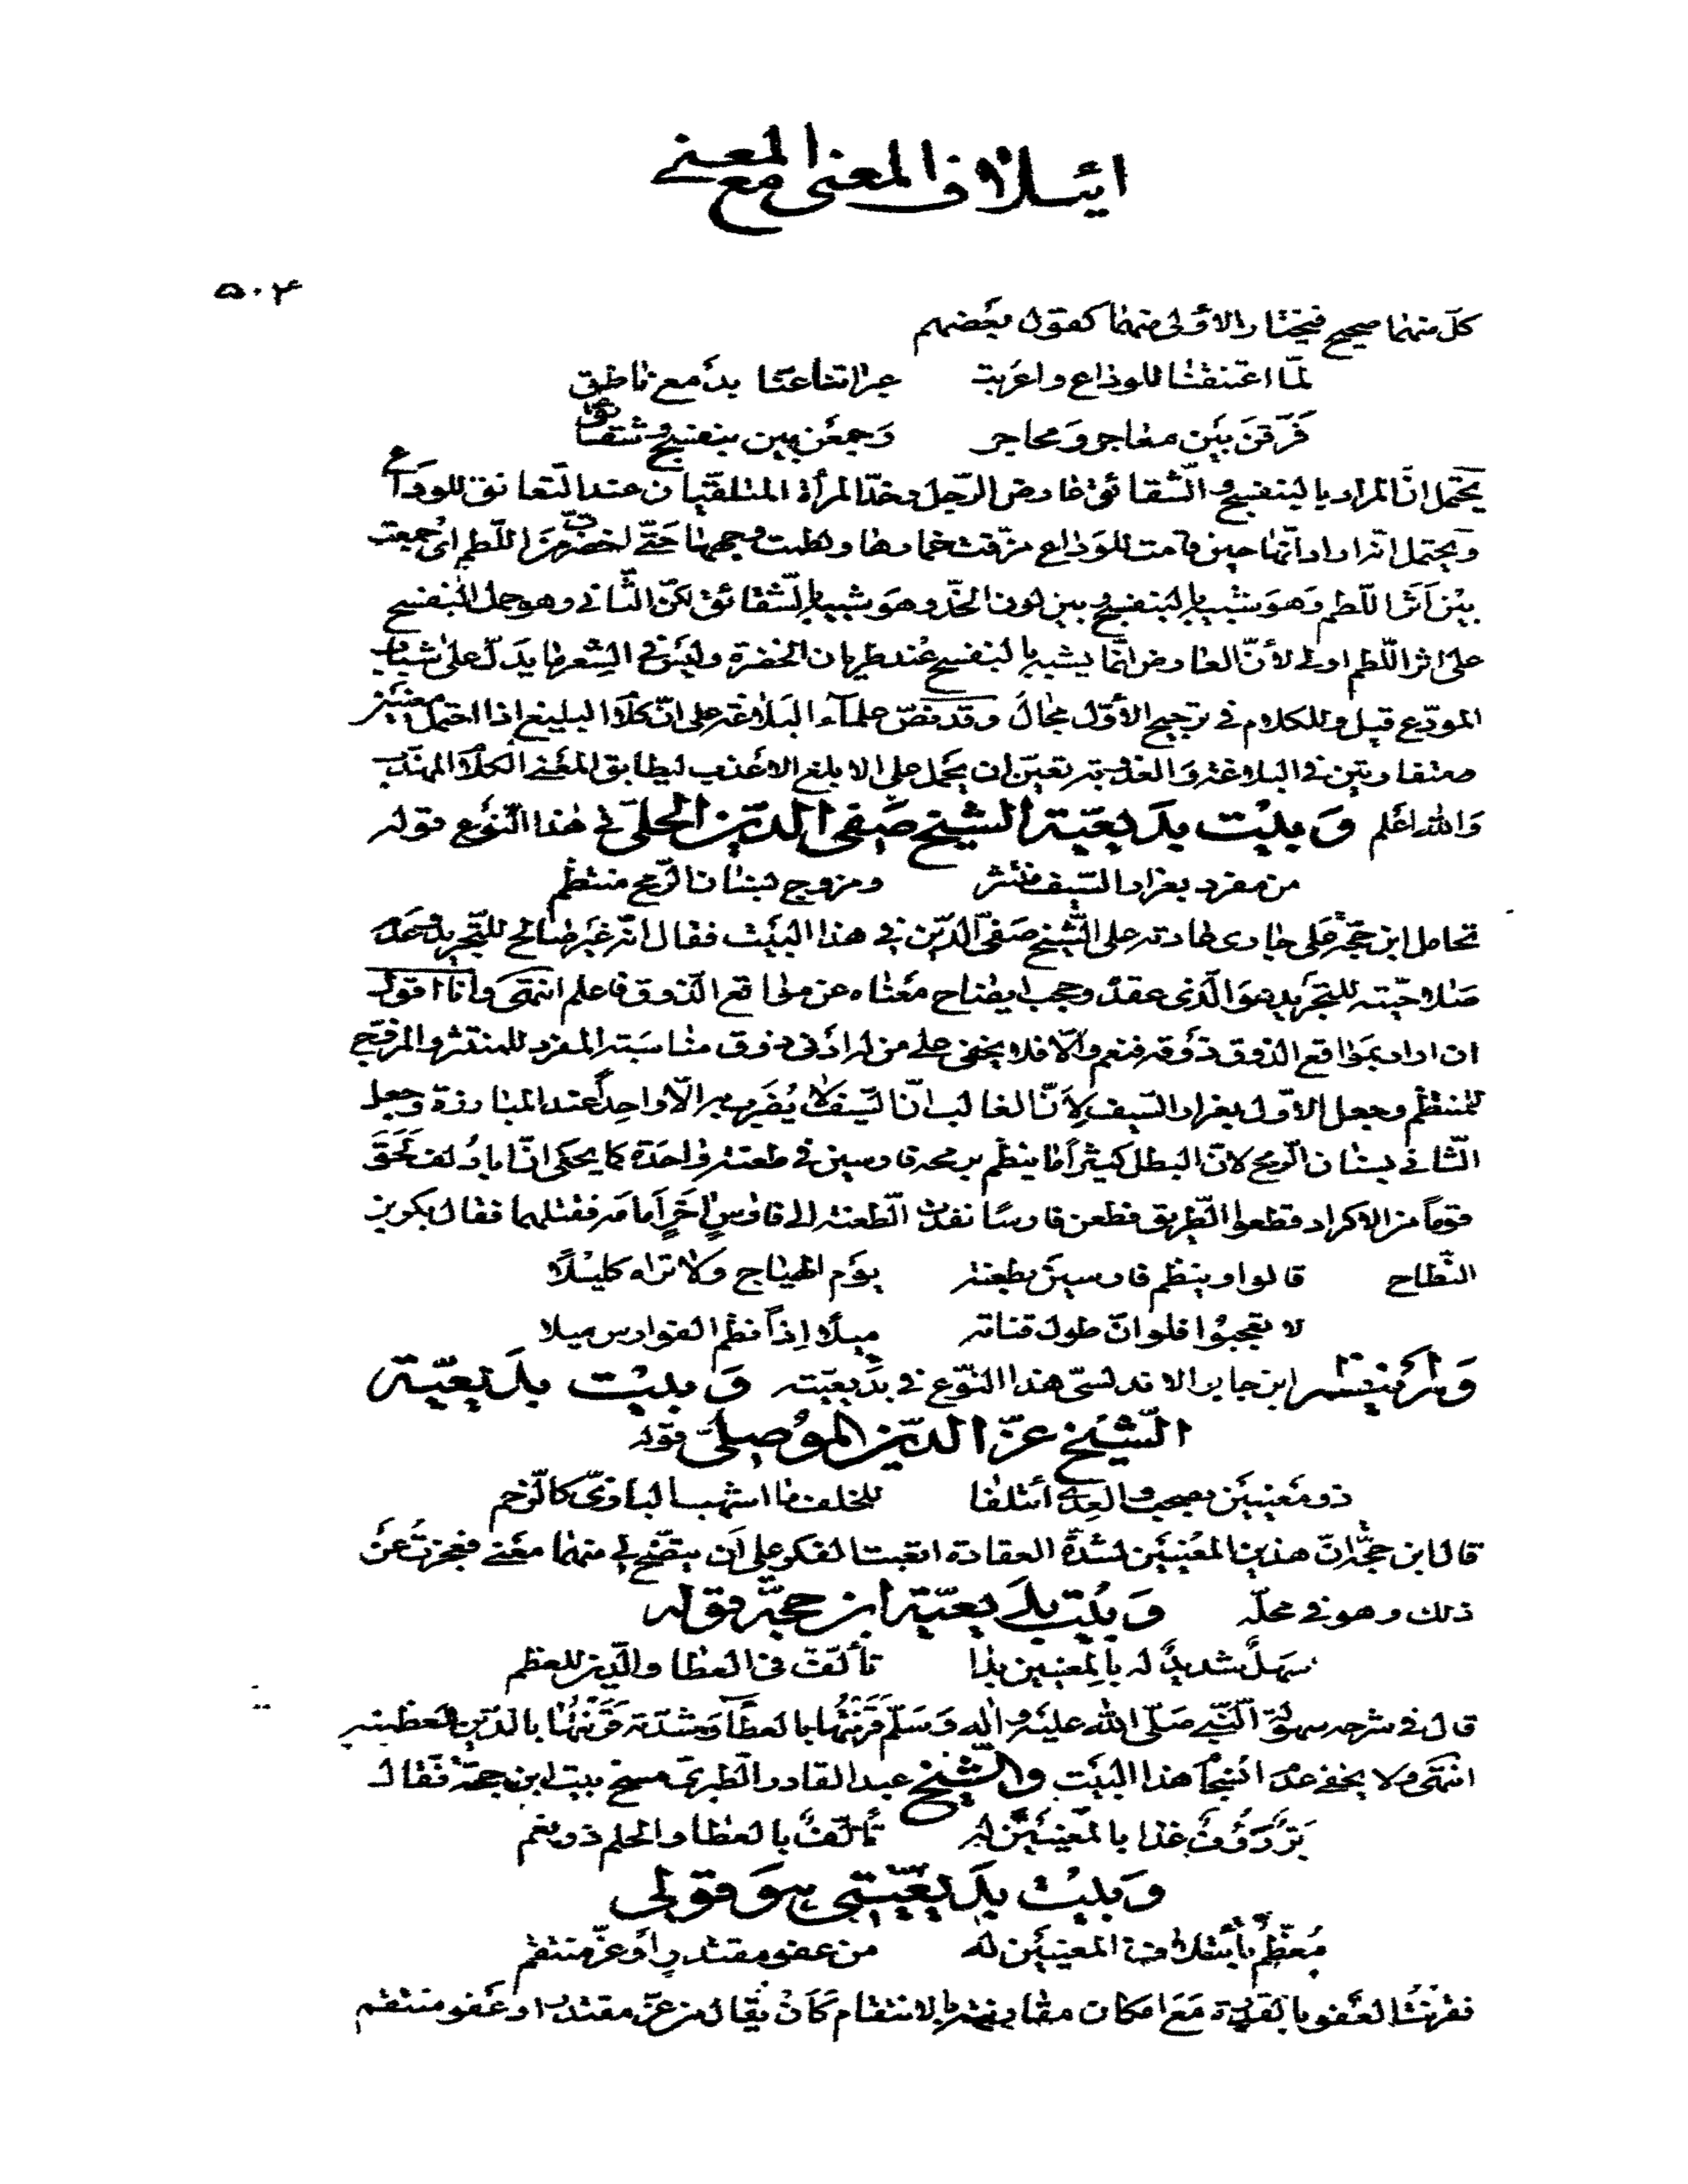 ائتلاف المعنى مع المعنى
٥٠٤
كلّ منهما صحيح فيختار الأولى منهما كقول بعضهم
لمّا اعتنقنا للوداع واعربت عبراتنا عنّا بدمع ناطق
فرّقن بين معاجر ومحاجر وجمعن بين بنفسج وشقائق
يحتمل انّ المراد بالبنفسج والشّقائق عارض الرّجل وخدّ المرأة المتلقّيان عند التّعانق للوداع
ويحتمل انّه اراد انّها حين قامت للوداع مزّقت خمارها ولطمت وجهها حتّى اخضرّ من اللّطم اى جمعت
بين اثر اللّطم وهو شبيه بالبنفسج وبين لون الخدّ وهو شبيه بالشّقائق لكن الثّانى وهو حمل البنفسج
على اثر اللّطم اولى لأنّ العارض انّما يشبه بالبنفسج عند طريان الخضرة وليس فى الشّعر ما يدلّ على شباب
المودّع قيل وللكلام فى ترجيح الأوّل مجال وقد نصّ علماء البلاغة على انّ كلام البليغ اذا احتمل معنيين
متفاوتين فى البلاغة والعذوبة تعيّن ان يحمل على الابلغ الاعذب ليطابق المعنى الكلام المهذّب
والله اعلم وبيت بديعيّة الشيخ صفى الدّين الحلّى فى هذا النّوع قوله
من مفرد بغرار السّيف منتثر ومزوج بسنان الرّمح منتظم
تحامل ابن حجّة على جارى عادته على الشّيخ صفىّ الدّين فى هذا البيت فقال انّه غير صالح للتّجريد وعدم
صلاحيّته للتجريد هو الّذى عقد وحجب ايضاح معناه عن مواقع الذّوق فاعلم انتهى وانا اقول
ان اراد بمواقع الذوق ذوقه فنعم والّا فلا يخفى على من له ادنى ذوق مناسبة المفرد للمنتثر والمزوّج
للمنتظم وجعل الاوّل بغرار السّيف لأنّ الغالب انّ السّيف لا يُضرب به الّا واحداً عند المبارزة وجعل
الثّانى بسنان الرّمح لانّ البطل كثيراً ما ينظم برمحه فارسين فى طعنة واحدة كما يحكى انّ ابا دُلف لَحِقَ
قوماً من الاكراد قطعوا الطّريق فطعن فارسًا نفذت الطّعنة الى فارسٍ آخر امامه فقتلهما فقال بكر بن
النّطاح قالوا وينظم فارسين بطعنة يوم الهياج ولا تراه كليلًا
لا تعجبوا فلو انّ طول قناته ميلًا اذاً نظم الفوارس ميلا
ولم ينظم ابن جابر الاندلسىّ هذا النّوع فى بديعيّته وبيت بديعيّة
الشّيخ عزّ الدّين الموصلىّ قوله
ذو معنيين بصحب والعدى ائتلفا للخلف ما اشهب البازىّ كالرّخم
قال ابن حجّة انّ هذين المعنيين لشدّة العقادة اتعبت الفكر على ان يتّضح لى منهما معنى فعجزتُ عن
ذلك وهو فى محلّه وبيت بديعيّة ابن حجّة قوله
سهلٌ شديدٌ له بالمعنيين بدا تألّفٌ فى العطا والدّين للعظم
قال فى شرحه سهولة النّبى صلّى الله عليه وآله وسلّم قرنتُها بالعطآ وشدّته قرنتُها بالدّين لعظمته
انتهى ولا يخفى عدم انسجام هذا البيت والشّيخ عبد القادر الطّبرىّ مسخ بيت ابن حجّة فقال
برٌّ رؤوفٌ غدا بالمعنيين له تألّفٌ بالعطا والحلم ذو نغم
وبيت بديعيّتى هو قولى
مُعظّمٌ بائتلاف المعنيين له من عفو مقتدرٍ او عزّ منتقم
فقرنتُ العفو بالقدرة مع امكان مقارنته بالانتقام كأن يُقال من عزّ مقتدر او عفو منتقم